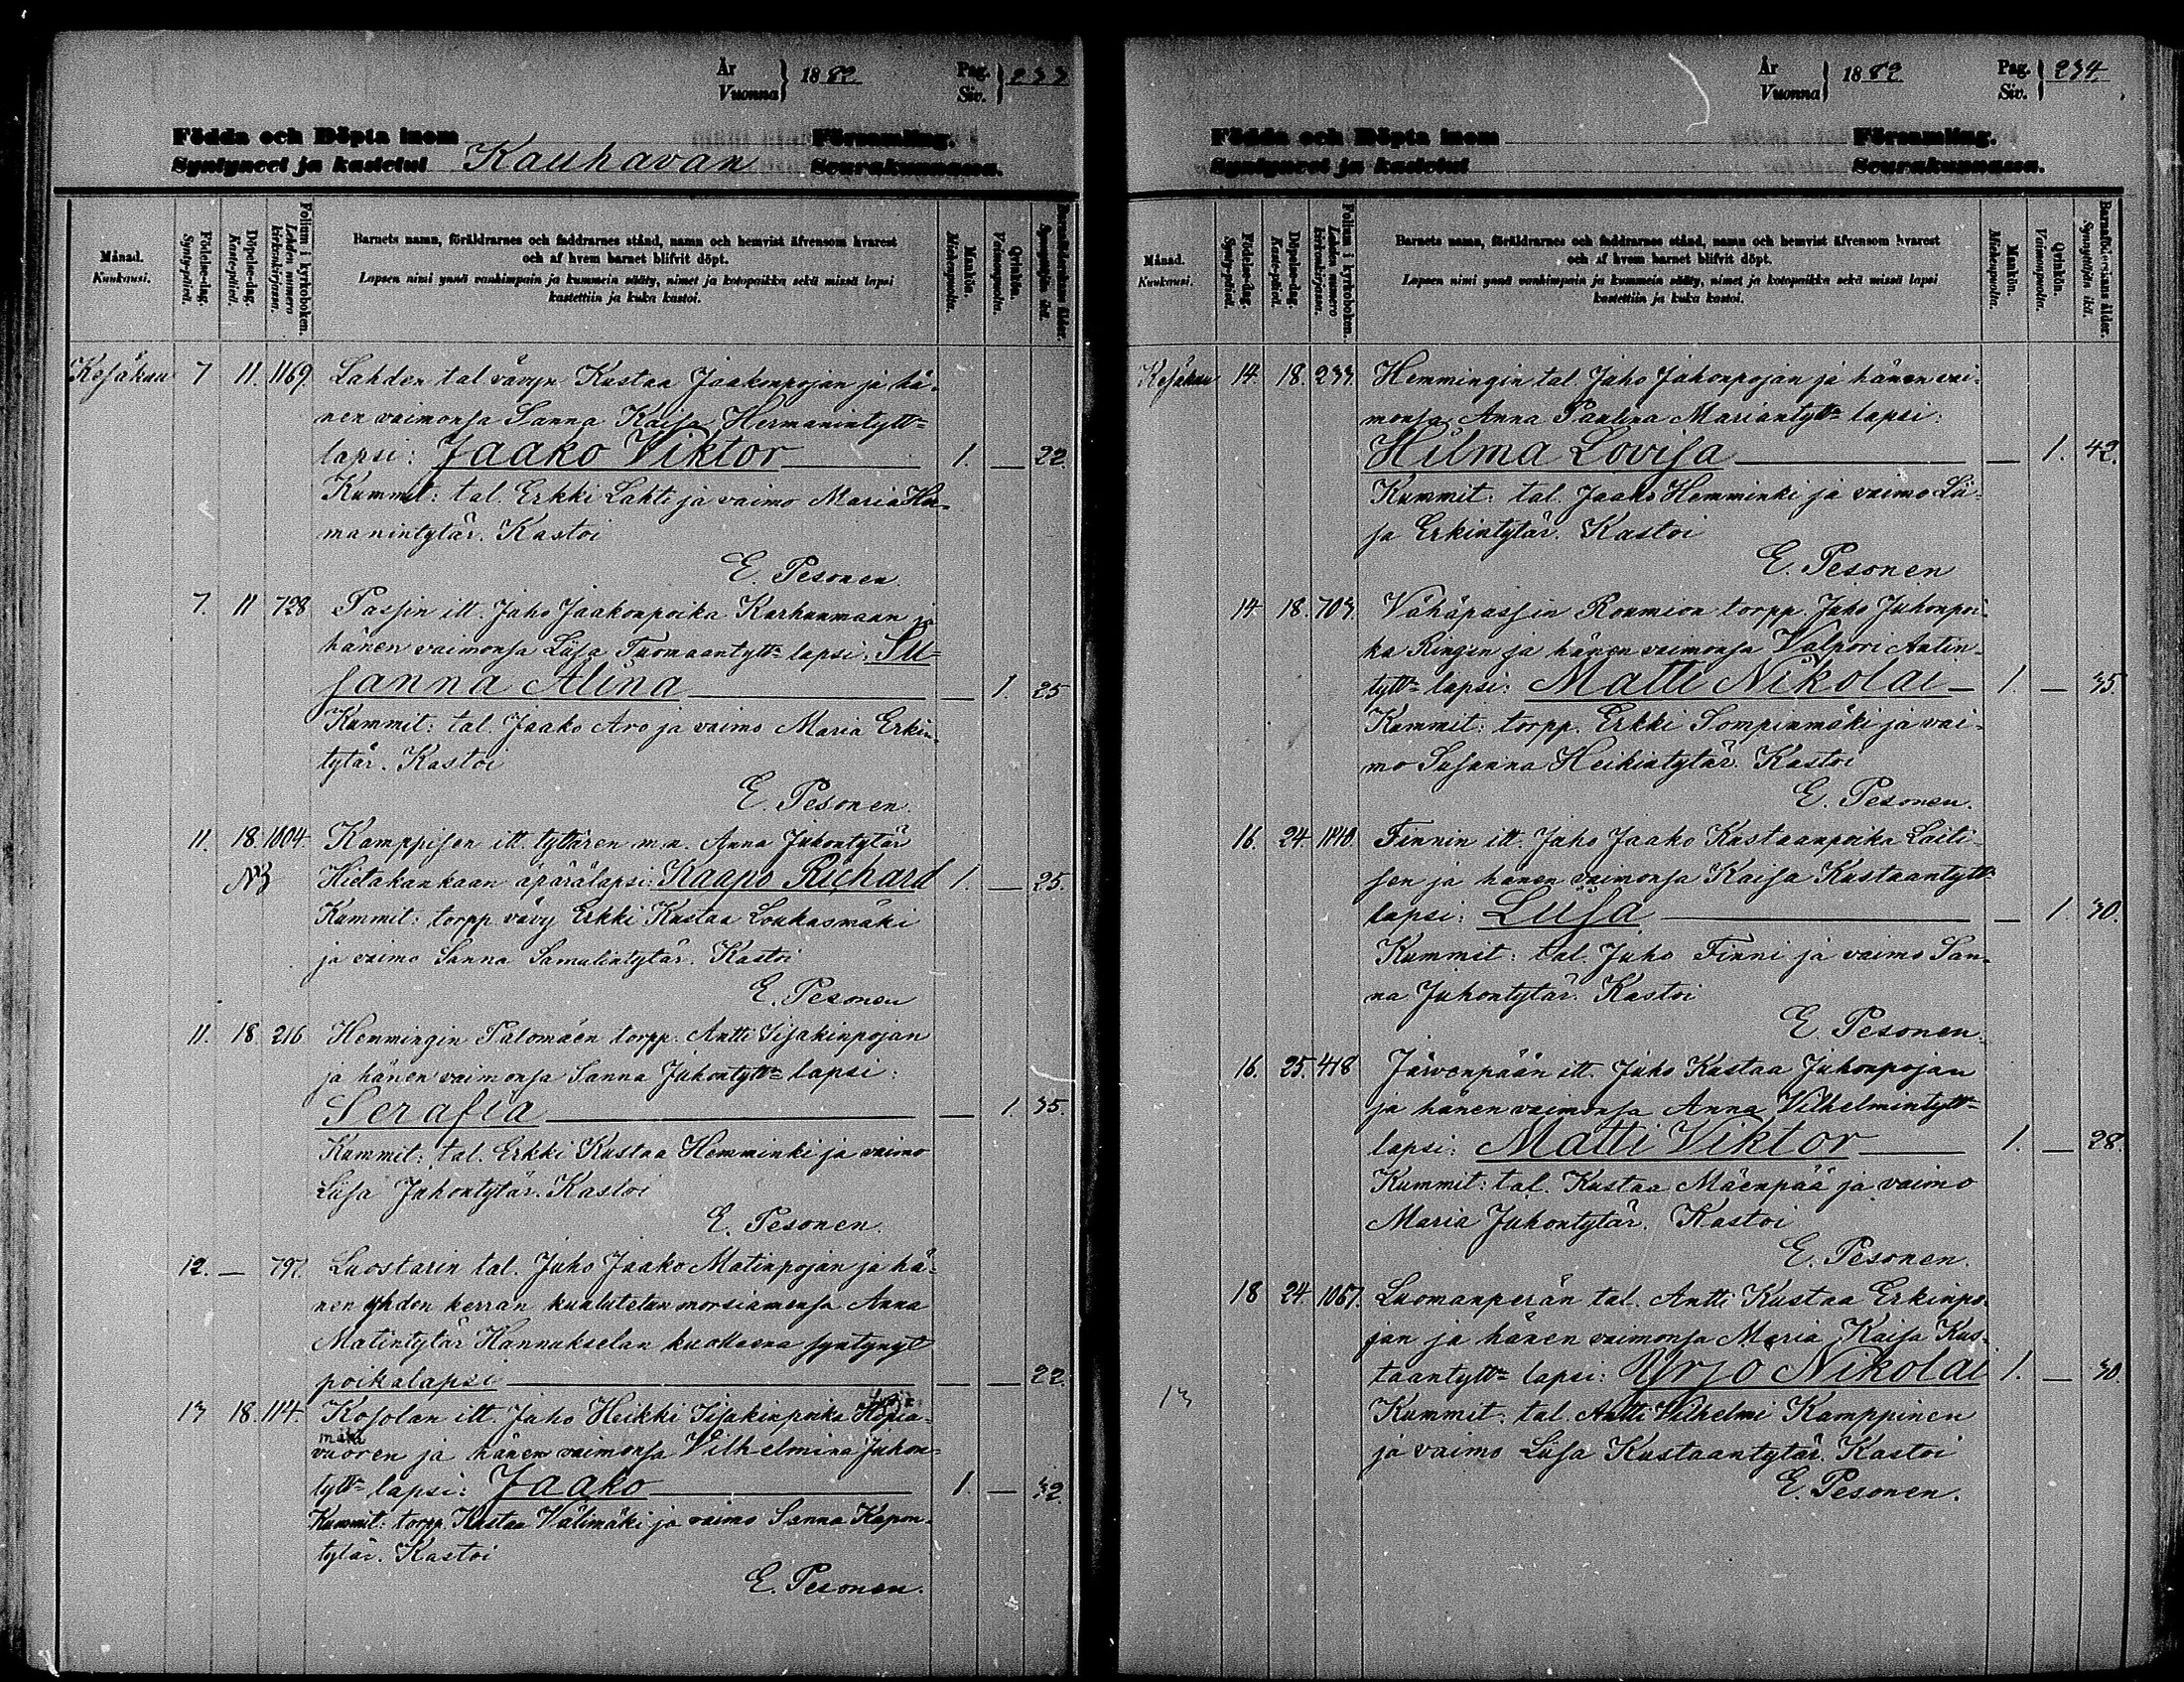 År
Vuonna } 1882
Pag.
Siv. } 233
Födda och Döpta inom Församling.
Syntyneet ja kastetut Kauhavan Seurakunnassa.
Månad.
Kuukausi.
Födelse-dag.
Synty-päivä.
Döpelse-dag.
Kaste-päivä.
Folium i kyrkoboken.
Lehden numero kirkonkirjassa.
Barnets namn, föräldrarnes och faddrarnes stånd, namn och hemvist äfvensom hvarest
och af hvem barnet blifvit döpt.
Lapsen nimi ynnä vanhimpain ja kummein sääty, nimet ja kotopaikka sekä missä lapsi
kastettiin ja kuka kastoi.
Mankön.
Miehenpuolta.
Qvinkön.
Vaimonpuolta.
Barnaföderskans ålder.
Synnyttäjän ikä.
Kesäkuu 7 11. 1169. Lahden tal vävyn Kustaa Jaakonpojan ja hä-
nen vaimonsa Sanna Kaisa Hermanintytt-
lapsi: Jaako Viktor 1. — 22.
Kummit: tal. Erkki Lahti ja vaimo Maria Her-
manintytär. Kastoi
E. Pesonen
7. 11 728 Passin itt. Juho Jaakonpoika Karhunmaan ja
hänen vaimonsa Liisa Tuomaantytt- lapsi: Su-
sanna Alina — 1. 25
Kummit: tal. Jaako Aro ja vaimo Maria Erkin-
tytär. Kastoi
E. Pesonen.
11. 18. 1004. Kamppisen itt. tyttären m.n. Anna Juhontytär
Hietakankaan äpärälapsi: Kaapo Richard 1. — 25.
Kummit: torpp. vävy Erkki Kustaa Loukasmäki
ja vaimo Sanna Samulintytär. Kastoi
E. Pesonen
11. 18 216 Hemmingin Palomäen torpp. Antti Iisakinpojan
ja hänen vaimonsa Sanna Juhontytt- lapsi:
Serafia — 1. 35.
Kummit: tal. Erkki Kustaa Hemminki ja vaimo
Liisa Juhontytär. Kastoi
E. Pesonen.
12. — 797. Luostarin tal. Juho Jaako Matinpojan ja hä-
nen yhden kerran kuulutetun morsiamensa Anna
Matintytär Hannukselan kuolleena syntynyt
poikalapsi — — 22.
13 18. 114. Kosolan itt. Juho Heikki Iisakinpoika
mäki
vuoren ja hänen vaimonsa Vilhelmina Juhon-
tytt- lapsi: Jaako 1. — 32.
Kummit: torpp. Kustaa Välimäki ja vaimo Sanna Kapon-
tytär. Kastoi
E. Pesonen.
År
Vuonna } 1882
Pag.
Siv. } 234
Födda och Döpta inom Församling.
Syntyneet ja kastetut Seurakunnassa.
Månad.
Kuukausi.
Födelse-dag.
Synty-päivä.
Döpelse-dag.
Kaste-päivä.
Folium i kyrkoboken.
Lehden numero kirkonkirjassa.
Barnets namn, föräldrarnes och faddrarnes stånd, namn och hemvist äfvensom hvarest
och af hvem barnet blifvit döpt.
Lapsen nimi ynnä vanhimpain ja kummein sääty, nimet ja kotopaikka sekä missä lapsi
kastettiin ja kuka kastoi.
Mankön.
Miehenpuolta.
Qvinkön.
Vaimonpuolta.
Barnaföderskans ålder.
Synnyttäjän ikä.
Kesäkuu 14. 18. 233. Hemmingin tal. Juho Juhonpojan ja hänen vai-
monsa Anna Paulina Mariantytt- lapsi:
Hilma Lovisa — 1. 42.
Kummit: tal. Jaako Hemminki ja vaimo Lii-
sa Erkintytär. Kastoi
E. Pesonen
14 18. 703. Vähäpassin Roumion torpp. Juho Juhonpoi-
ka Ringin ja hänen vaimonsa Valpori Antin-
tytt- lapsi: Matti Nikolai 1. — 35.
Kummit: torpp. Erkki Sompinmäki ja vai-
mo Susanna Heikintytär. Kastoi
E. Pesonen.
16. 24. 1140. Finnin itt. Juho Jaako Kustaanpoika Laiti-
sen ja hänen vaimonsa Kaisa Kustaantytt-
lapsi: Liisa — 1. 30.
Kummit: tal. Juho Finni ja vaimo San-
na Juhontytär. Kastoi
E. Pesonen.
16. 25. 418 Järvenpään itt. Juho Kustaa Juhonpojan
ja hänen vaimonsa Anna Vilhelmintytt-
lapsi: Matti Viktor 1. — 28.
Kummit: tal. Kustaa Mäenpää ja vaimo
Maria Juhontytär. Kastoi
E. Pesonen.
18 24. 1067. Luomanperän tal. Antti Kustaa Erkinpo-
jan ja hänen vaimonsa Maria Kaisa Kus-
taantytt- lapsi: Yrjö Nikolai 1. — 30.
13 Kummit: tal. Antti Vilhelmi Kamppinen
ja vaimo Liisa Kustaantytär. Kastoi
E. Pesonen.